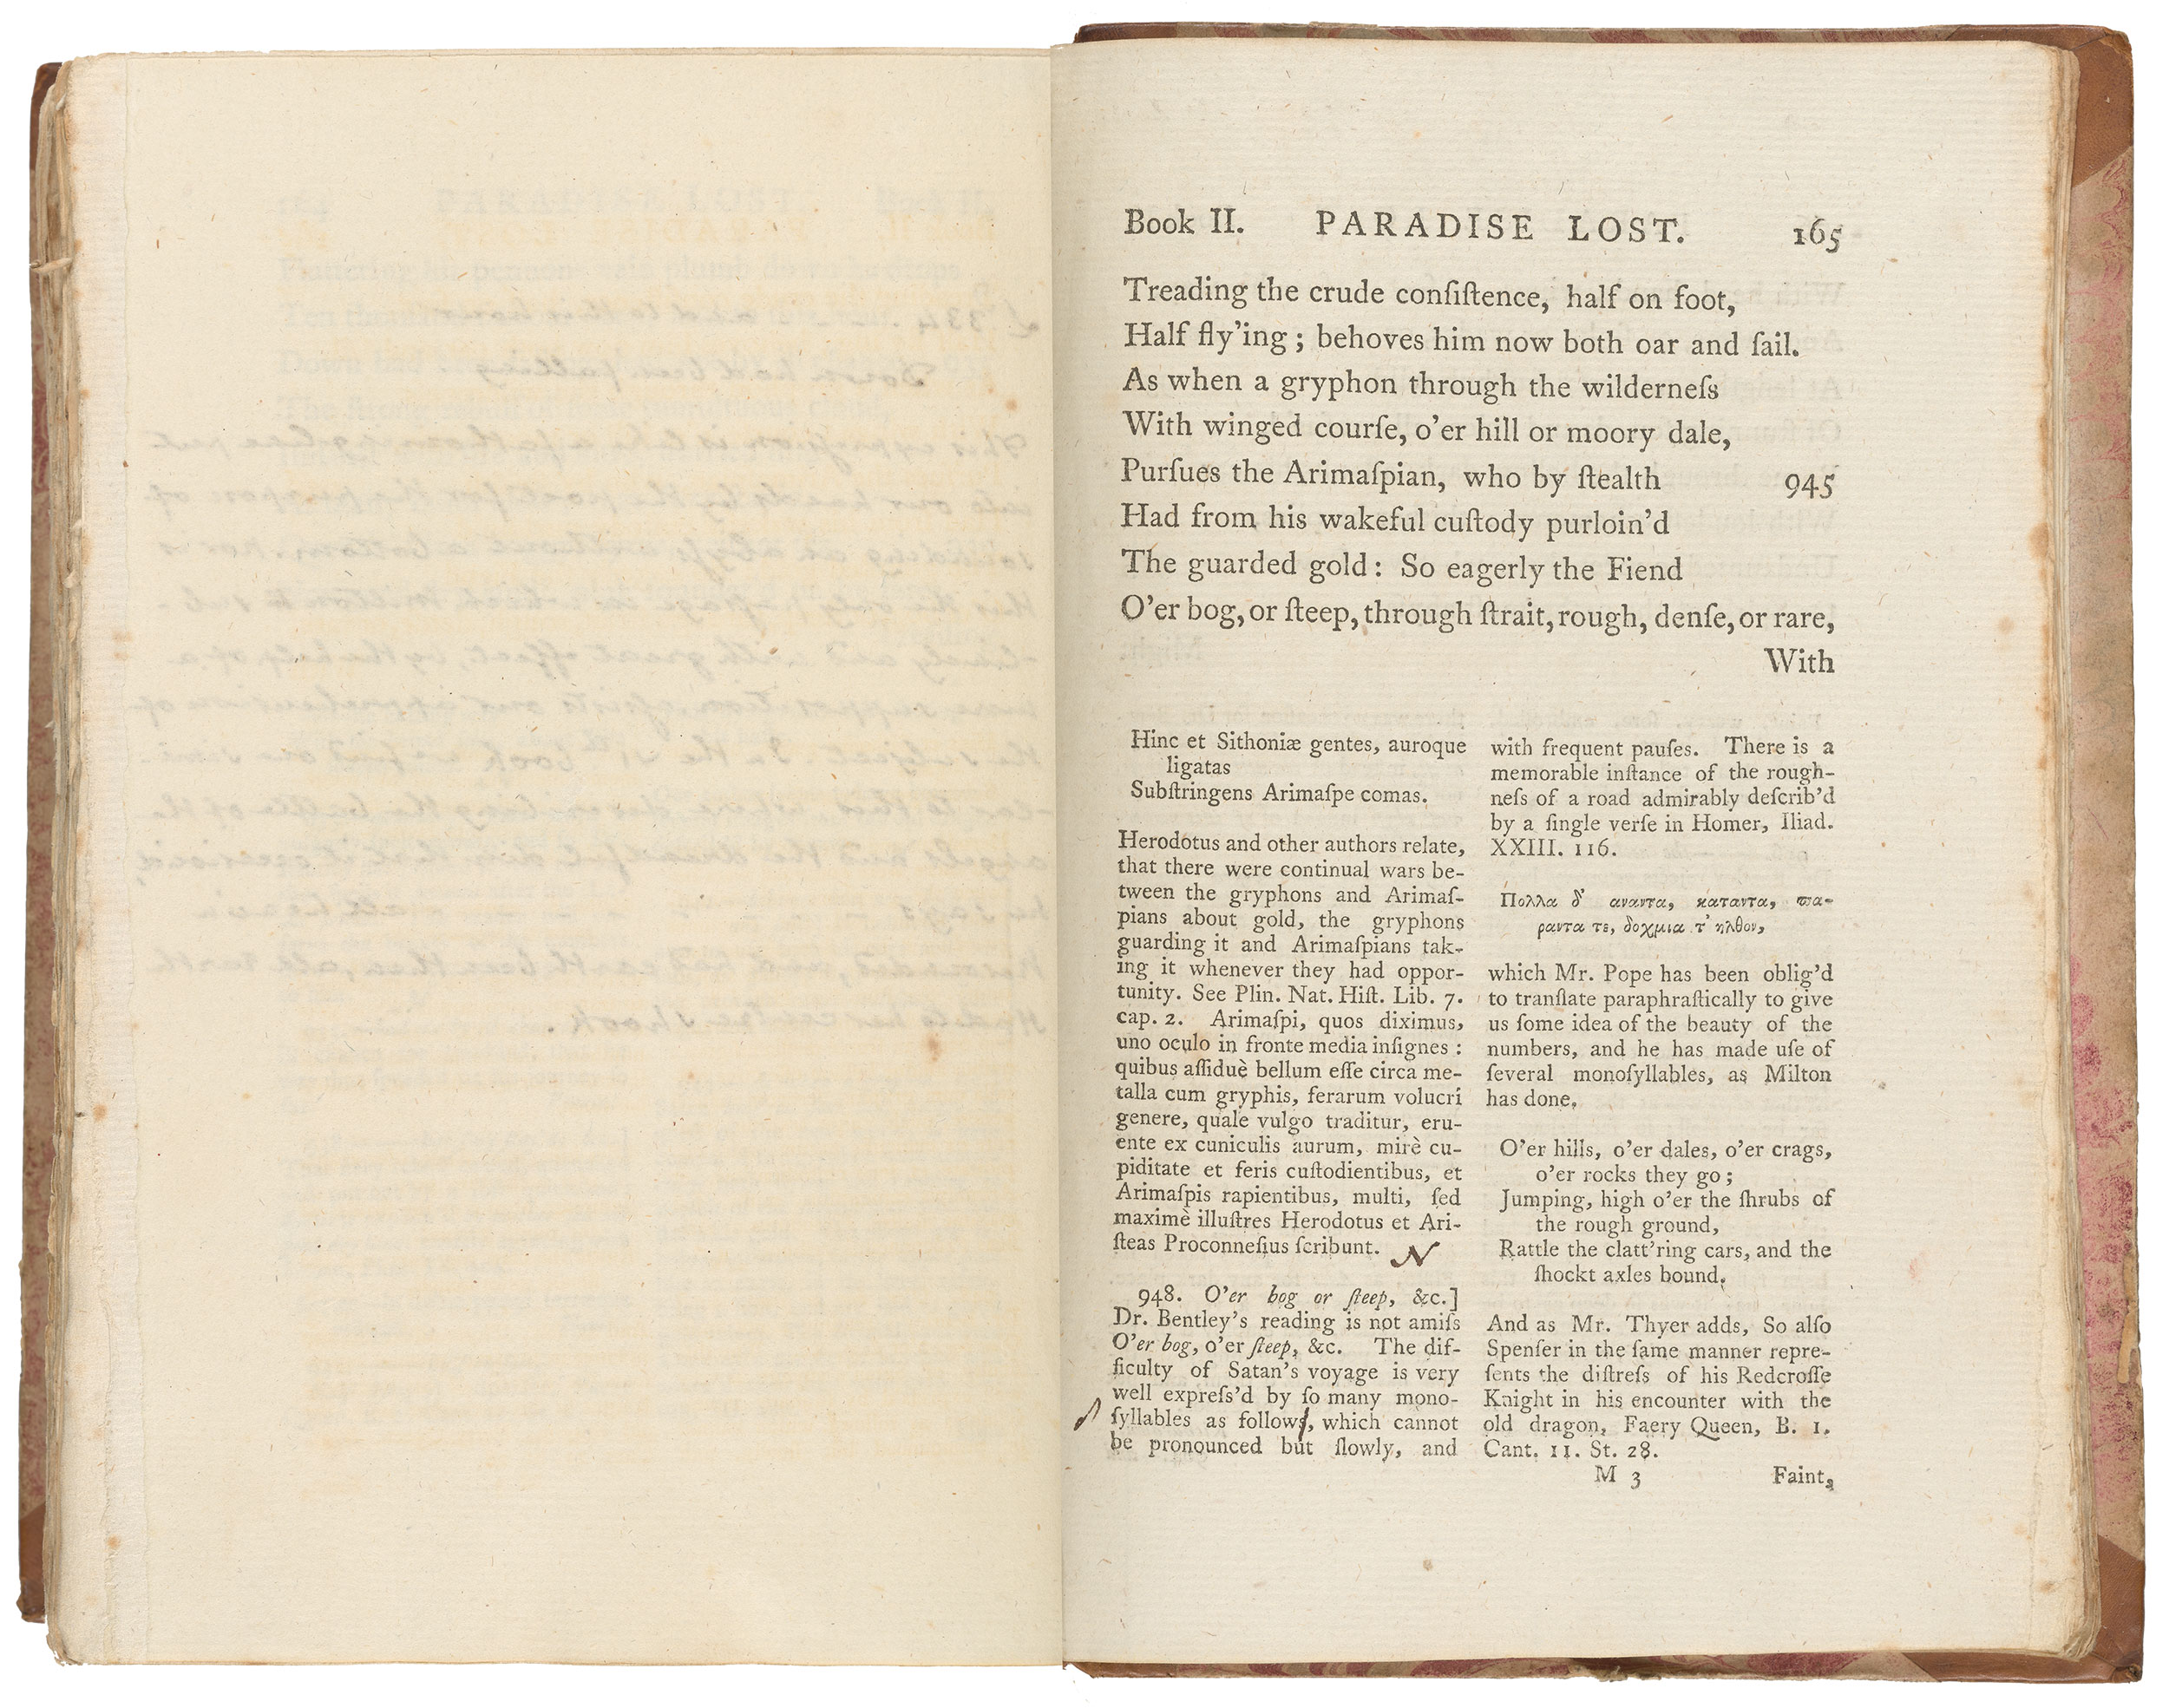 Book II. PARADISE LOST. 165
Treading the crude conſiſtence, half on foot,
Half fly'ing; behoves him now both oar and ſail.
As when a gryphon through the wilderneſs
With winged courſe, o'er hill or moory dale,
Purſues the Arimaſpian, who by ſtealth 945
Had from his wakeful cuſtody purloin'd
The guarded gold: So eagerly the Fiend
O'er bog, or ſteep, through ſtrait, rough, denſe, or rare,
With
Hinc et Sithoniæ gentes, auroque
ligatas
Subſtringens Arimaſpe comas.
Herodotus and other authors relate,
that there were continual wars be-
tween the gryphons and Arimaſ-
pians about gold, the gryphons
guarding it and Arimaſpians tak-
ing it whenever they had oppor-
tunity. See Plin. Nat. Hiſt. Lib. 7.
cap. 2. Arimaſpi, quos diximus,
uno oculo in fronte media inſignes:
quibus aſſiduè bellum eſſe circa me-
talla cum gryphis, ferarum volucri
genere, quale vulgo traditur, eru-
ente ex cuniculis aurum, mirè cu-
piditate et feris cuſtodientibus, et
Arimaſpis rapientibus, multi, ſed
maximè illuſtres Herodotus et Ari-
ſteas Proconneſius ſcribunt. N
948. O'er bog or ſteep, &c.]
Dr. Bentley's reading is not amiſs
O'er bog, o'er ſteep, &c. The dif-
ficulty of Satan's voyage is very
well expreſs'd by ſo many mono-
ſyllables as follows, which cannot
be pronounced but ſlowly, and
with frequent pauſes. There is a
memorable inſtance of the rough-
neſs of a road admirably deſcrib'd
by a ſingle verſe in Homer, Iliad.
XXIII. 116.
Πολλα δ' αναντα, καταντα, ϖα-
ραντα τε, δοχμια τ' ηλθον,
which Mr. Pope has been oblig'd
to tranſlate paraphraſtically to give
us ſome idea of the beauty of the
numbers, and he has made uſe of
ſeveral monoſyllables, as Milton
has done.
O'er hills, o'er dales, o'er crags,
o'er rocks they go;
Jumping, high o'er the ſhrubs of
the rough ground,
Rattle the clatt'ring cars, and the
ſhockt axles bound.
And as Mr. Thyer adds, So alſo
Spenſer in the ſame manner repre-
ſents the diſtreſs of his Redcroſſe
Knight in his encounter with the
old dragon, Faery Queen, B. 1.
Cant. 11. St. 28.
M 3 Faint,